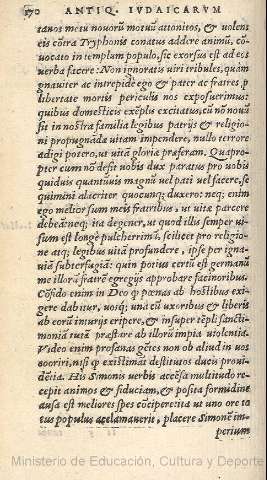 370 ANTIQ. IVDAICARVM
tanos metu nouorũ motuũ attonitos, & uolens
eis cõtra Tryphonis conatus addere animũ, cõ-
uocato in templum populo, sic exorsus est ad eos
uerba facere. Non ignoratis uiri tribules, quàm
gnauiter ac intrepidè ego & pater ac fratres p
libertate mortis periculis nos exposuerimus:
quibus domesticis exẽplis excitatus, cũ nõ noui
sit in nostra familia legibus patrijs & religio-
ni propugnãda uitam impendere, nullo terrore
adigi potero, ut uitã gloriæ præferam. Quapro-
pter cum nõ desit uobis dux paratus pro uobis
quiduis quantũuis magnũ uel pati uel facere, se
quimini alacriter quocunq; duxero: neq; enim
ego melior sum meis fratribus, ut uitæ parcere
debeã: neq; ita degener, ut quod illis semper ui-
sum est longè pulcherrimũ, scilicet pro religio-
ne atq; legibus uitã profundere, ipse per igna-
uiã subterfugiã: quin potius certũ est germanũ
me illorũ fratrẽ egregijs approbare facinoribus.
Cõfido enim in Deo q pœnas ab hostibus exi-
gere dabitur, uosq; unà cũ uxoribus & liberis
ab eorũ iniurijs eripere, & insuper tẽpli sancti-
moniã tutã præstare ab illorũ impia uiolentia.
Video enim profanas gẽtes non ob aliud in uos
cooriri, nisi q existimãt destitutos ducis proui-
dẽtia. His Simonis uerbis accẽsa multitudo re-
cepit animos & fiduciam, & posita formidine
ausa est meliores spes cõcipere: ita ut uno ore to
tus populus acclamauerit, placere Simonẽ im-
perium
Ministerio de Educación, Cultura y Deporte